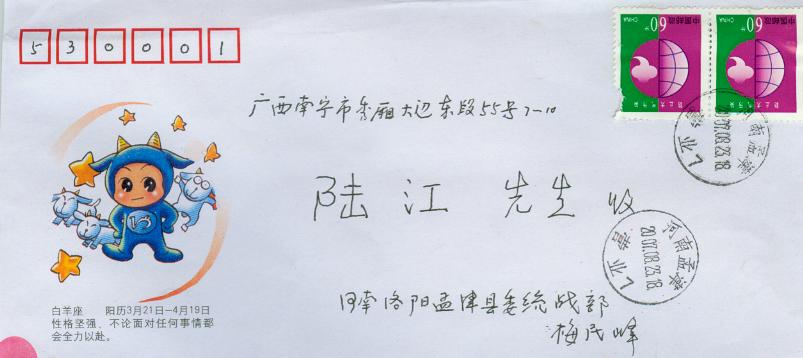 530001
中国邮政
CHINA
60分
防止大气污染
中国邮政
CHINA
60分
防止大气污染
广西南宁市秀厢大道东段55号7-10
陆江 先生 收
河南孟津
2007.08.23.18
营业
河南孟津
2007.08.23.18
营业
河南洛阳孟津县委统战部
梅民峰
白羊座 阳历3月21日—4月19日
性格坚强、不论面对任何事情都
会全力以赴。